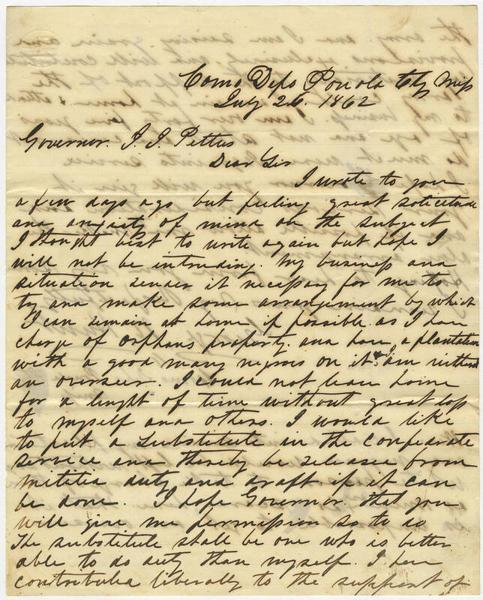 Como Depo Ponola Cty Miss
July 26. 1862
Governor. J. J. Pettus
Dear Sir
I wrote to you
a few days ago but feeling great solicitude
and anxiety of mind on the subject
I thought best to write again but hope I
will not be intruding. My business and
situation renders it necessary for me to
try and make some arrangement by which
I can remain at home if possible as I have
charge of Orphans property. and have a plantation
with a good many negros on it & am without
an overseer. I could not leave home
for a lenght of time without great loss
to myself and others. I would like
to put a substitute in the confederate
service and thereby be released from
militia duty and draft if it can
be done. I hope Governor that you
will give me permission so to do
The substitute shall be one who is better
able to do duty than myself. I have
contributed liberally to the support of